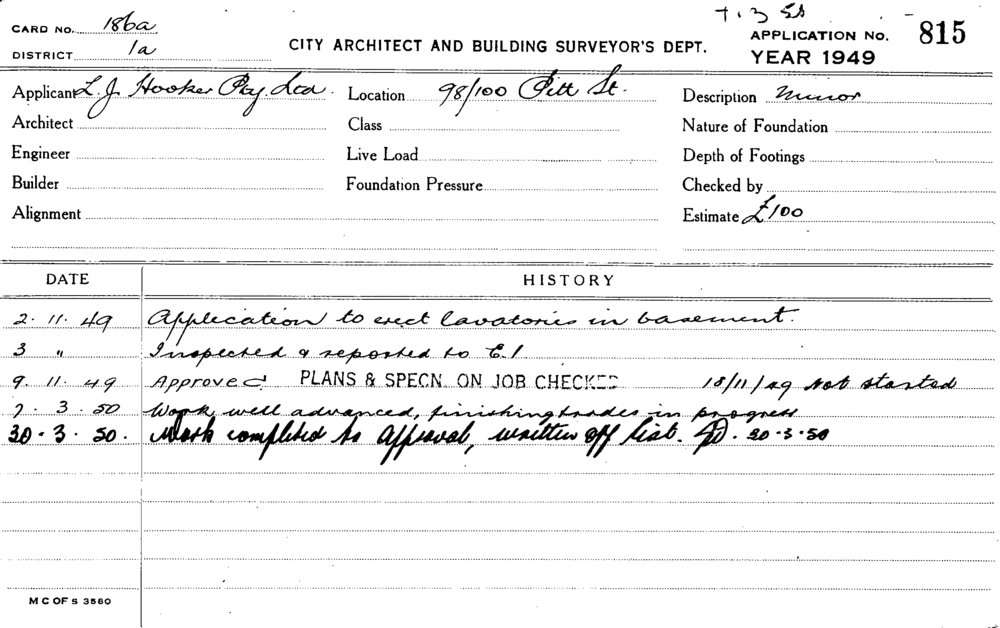 7.3.50
CARD NO. 186a
APPLICATION NO. 815
DISTRICT 1a
CITY ARCHITECT AND BUILDING SURVEYOR'S DEPT.
YEAR 1949
Applicant L. J. Hooker Pty. Ltd. Location 98/100 Pitt St. Description Minor
Architect Class Nature of Foundation
Engineer Live Load Depth of Footings
Builder Foundation Pressure Checked by
Alignment Estimate £100
DATE HISTORY
2. 11. 49 Application to erect lavatories in basement.
3 " Inspected & reported to E.1
9. 11. 49 Approved PLANS & SPECN. ON JOB CHECKED 18/11/49 Not started
7. 3. 50 Work well advanced, finishing trades in progress
30. 3. 50. Work completed to approval, written off list. 30-3-50
M C OF S 3580